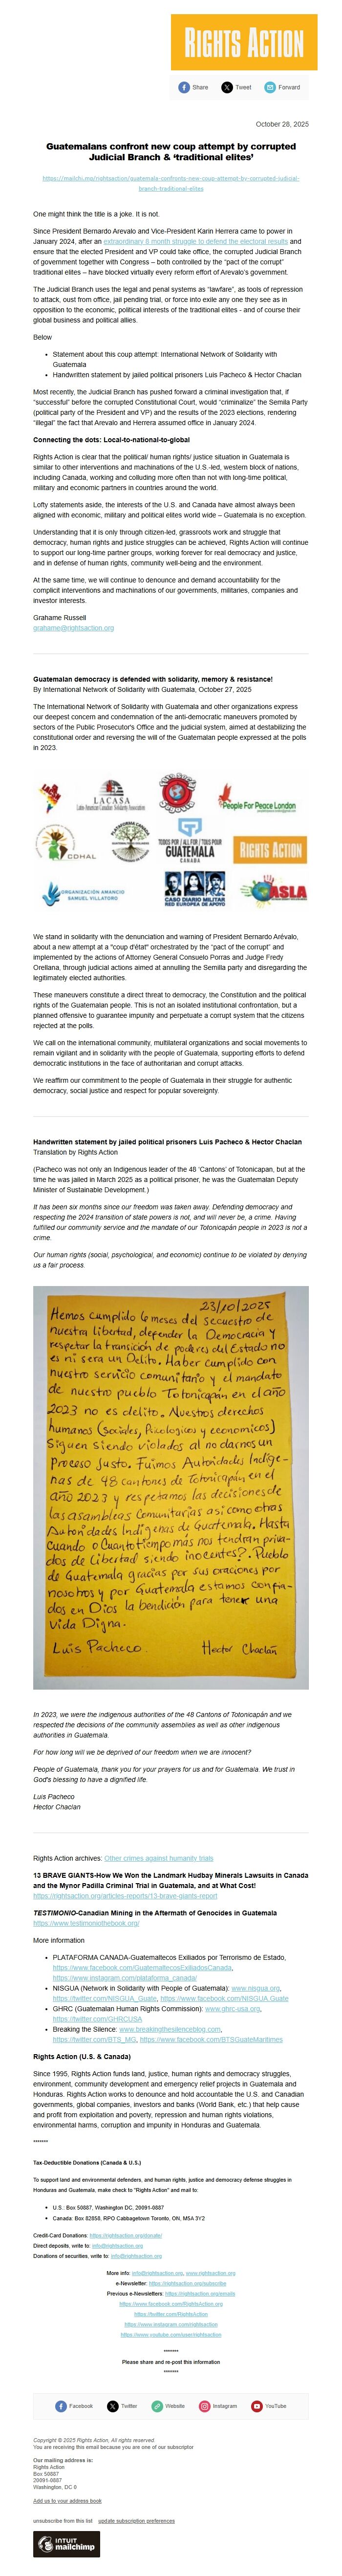 RIGHTS ACTION
Share Tweet Forward
October 28, 2025
Guatemalans confront new coup attempt by corrupted
Judicial Branch & ‘traditional elites’
https://mailchi.mp/rightsaction/guatemala-confronts-new-coup-attempt-by-corrupted-judicial-
branch-traditional-elites
One might think the title is a joke. It is not.
Since President Bernardo Arevalo and Vice-President Karin Herrera came to power in
January 2024, after an extraordinary 8 month struggle to defend the electoral results and
ensure that the elected President and VP could take office, the corrupted Judicial Branch
of government together with Congress – both controlled by the “pact of the corrupt”
traditional elites – have blocked virtually every reform effort of Arevalo’s government.
The Judicial Branch uses the legal and penal systems as “lawfare”, as tools of repression
to attack, oust from office, jail pending trial, or force into exile any one they see as in
opposition to the economic, political interests of the traditional elites - and of course their
global business and political allies.
Below
• Statement about this coup attempt: International Network of Solidarity with
Guatemala
• Handwritten statement by jailed political prisoners Luis Pacheco & Hector Chaclan
Most recently, the Judicial Branch has pushed forward a criminal investigation that, if
“successful” before the corrupted Constitutional Court, would “criminalize” the Semilla Party
(political party of the President and VP) and the results of the 2023 elections, rendering
“illegal” the fact that Arevalo and Herrera assumed office in January 2024.
Connecting the dots: Local-to-national-to-global
Rights Action is clear that the political/ human rights/ justice situation in Guatemala is
similar to other interventions and machinations of the U.S.-led, western block of nations,
including Canada, working and colluding more often than not with long-time political,
military and economic partners in countries around the world.
Lofty statements aside, the interests of the U.S. and Canada have almost always been
aligned with economic, military and political elites world wide – Guatemala is no exception.
Understanding that it is only through citizen-led, grassroots work and struggle that
democracy, human rights and justice struggles can be achieved, Rights Action will continue
to support our long-time partner groups, working forever for real democracy and justice,
and in defense of human rights, community well-being and the environment.
At the same time, we will continue to denounce and demand accountability for the
complicit interventions and machinations of our governments, militaries, companies and
investor interests.
Grahame Russell
grahame@rightsaction.org
Guatemalan democracy is defended with solidarity, memory & resistance!
By International Network of Solidarity with Guatemala, October 27, 2025
The International Network of Solidarity with Guatemala and other organizations express
our deepest concern and condemnation of the anti-democratic maneuvers promoted by
sectors of the Public Prosecutor's Office and the judicial system, aimed at destabilizing the
constitutional order and reversing the will of the Guatemalan people expressed at the polls
in 2023.
LACASA
Latin American Canadian Solidarity Association
People For Peace London
CDHAL
PLATAFORMA CANADA
TODOS POR / ALL FOR / TOUS POUR
GUATEMALA
CANADA
RIGHTS ACTION
ORGANIZACIÓN AMANCIO
SAMUEL VILLATORO
CASO DIARIO MILITAR
RED EUROPEA DE APOYO
ASLA
We stand in solidarity with the denunciation and warning of President Bernardo Arévalo,
about a new attempt at a "coup d'état" orchestrated by the “pact of the corrupt” and
implemented by the actions of Attorney General Consuelo Porras and Judge Fredy
Orellana, through judicial actions aimed at annulling the Semilla party and disregarding the
legitimately elected authorities.
These maneuvers constitute a direct threat to democracy, the Constitution and the political
rights of the Guatemalan people. This is not an isolated institutional confrontation, but a
planned offensive to guarantee impunity and perpetuate a corrupt system that the citizens
rejected at the polls.
We call on the international community, multilateral organizations and social movements to
remain vigilant and in solidarity with the people of Guatemala, supporting efforts to defend
democratic institutions in the face of authoritarian and corrupt attacks.
We reaffirm our commitment to the people of Guatemala in their struggle for authentic
democracy, social justice and respect for popular sovereignty.
Handwritten statement by jailed political prisoners Luis Pacheco & Hector Chaclan
Translation by Rights Action
(Pacheco was not only an Indigenous leader of the 48 ‘Cantons’ of Totonicapan, but at the
time he was jailed in March 2025 as a political prisoner, he was the Guatemalan Deputy
Minister of Sustainable Development.)
It has been six months since our freedom was taken away. Defending democracy and
respecting the 2024 transition of state powers is not, and will never be, a crime. Having
fulfilled our community service and the mandate of our Totonicapán people in 2023 is not a
crime.
Our human rights (social, psychological, and economic) continue to be violated by denying
us a fair process.
23/10/2025
Hemos cumplido 6 meses del secuestro de
nuestra libertad, defender la Democracia y
respetar la transición de poderes del Estado no
es ni será un Delito. Haber cumplido con
nuestro servicio comunitario con el mandato
de nuestro pueblo Totonicapán en el año
2023 no es delito. Nuestros derechos
humanos (sociales, Psicologicos y economicos)
siguen siendo violados al no darnos un
Proceso Justo. Fuimos Autoridades Indige-
nas de 48 cantones de Totonicapán en el
año 2023 y respetamos las decisiones de
las asambleas Comunitarias asi como otras
Autoridades Indigenas de Guatemala. Hasta
Cuando o Cuanto tiempo mas nos tendran Privado
de Libertad siendo inocentes?. Pueblo
de Guatemala gracias por sus oraciones por
nosotros y por Guatemala estamos confia-
dos en Dios la bendición para tener una
Vida Digna.
Luis Pacheco Hector Chaclán
In 2023, we were the indigenous authorities of the 48 Cantons of Totonicapán and we
respected the decisions of the community assemblies as well as other indigenous
authorities in Guatemala.
For how long will we be deprived of our freedom when we are innocent?
People of Guatemala, thank you for your prayers for us and for Guatemala. We trust in
God's blessing to have a dignified life.
Luis Pacheco
Hector Chaclan
Rights Action archives: Other crimes against humanity trials
13 BRAVE GIANTS-How We Won the Landmark Hudbay Minerals Lawsuits in Canada
and the Mynor Padilla Criminal Trial in Guatemala, and at What Cost!
https://rightsaction.org/articles-reports/13-brave-giants-report
TESTIMONIO-Canadian Mining in the Aftermath of Genocides in Guatemala
https://www.testimoniothebook.org/
More information
• PLATAFORMA CANADA-Guatemaltecos Exiliados por Terrorismo de Estado,
https://www.facebook.com/GuatemaltecosExiliadosCanada,
https://www.instagram.com/plataforma_canada/
• NISGUA (Network in Solidarity with People of Guatemala): www.nisgua.org,
https://twitter.com/NISGUA_Guate, https://www.facebook.com/NISGUA.Guate
• GHRC (Guatemalan Human Rights Commission): www.ghrc-usa.org,
https://twitter.com/GHRCUSA
• Breaking the Silence: www.breakingthesilenceblog.com,
https://twitter.com/BTS_MG, https://www.facebook.com/BTSGuateMaritimes
Rights Action (U.S. & Canada)
Since 1995, Rights Action funds land, justice, human rights and democracy struggles,
environment, community development and emergency relief projects in Guatemala and
Honduras. Rights Action works to denounce and hold accountable the U.S. and Canadian
governments, global companies, investors and banks (World Bank, etc.) that help cause
and profit from exploitation and poverty, repression and human rights violations,
environmental harms, corruption and impunity in Honduras and Guatemala.
*******
Tax-Deductible Donations (Canada & U.S.)
To support land and environmental defenders, and human rights, justice and democracy defense struggles in
Honduras and Guatemala, make check to "Rights Action" and mail to:
• U.S.: Box 50887, Washington DC, 20091-0887
• Canada: Box 82858, RPO Cabbagetown Toronto, ON, M5A 3Y2
Credit-Card Donations: https://rightsaction.org/donate/
Direct deposits, write to: info@rightsaction.org
Donations of securities, write to: info@rightsaction.org
More info: info@rightsaction.org, www.rightsaction.org
e-Newsletter: https://rightsaction.org/subscribe
Previous e-Newsletters: https://rightsaction.org/emails
https://www.facebook.com/RightsAction.org
https://twitter.com/RightsAction
https://www.instagram.com/rightsaction
https://www.youtube.com/user/rightsaction
*******
Please share and re-post this information
*******
Facebook Twitter Website Instagram YouTube
Copyright © 2025 Rights Action, All rights reserved.
You are receiving this email because you are one of our subscriptor
Our mailing address is:
Rights Action
Box 50887
20091-0887
Washington, DC 0
Add us to your address book
unsubscribe from this list update subscription preferences
INTUIT
mailchimp